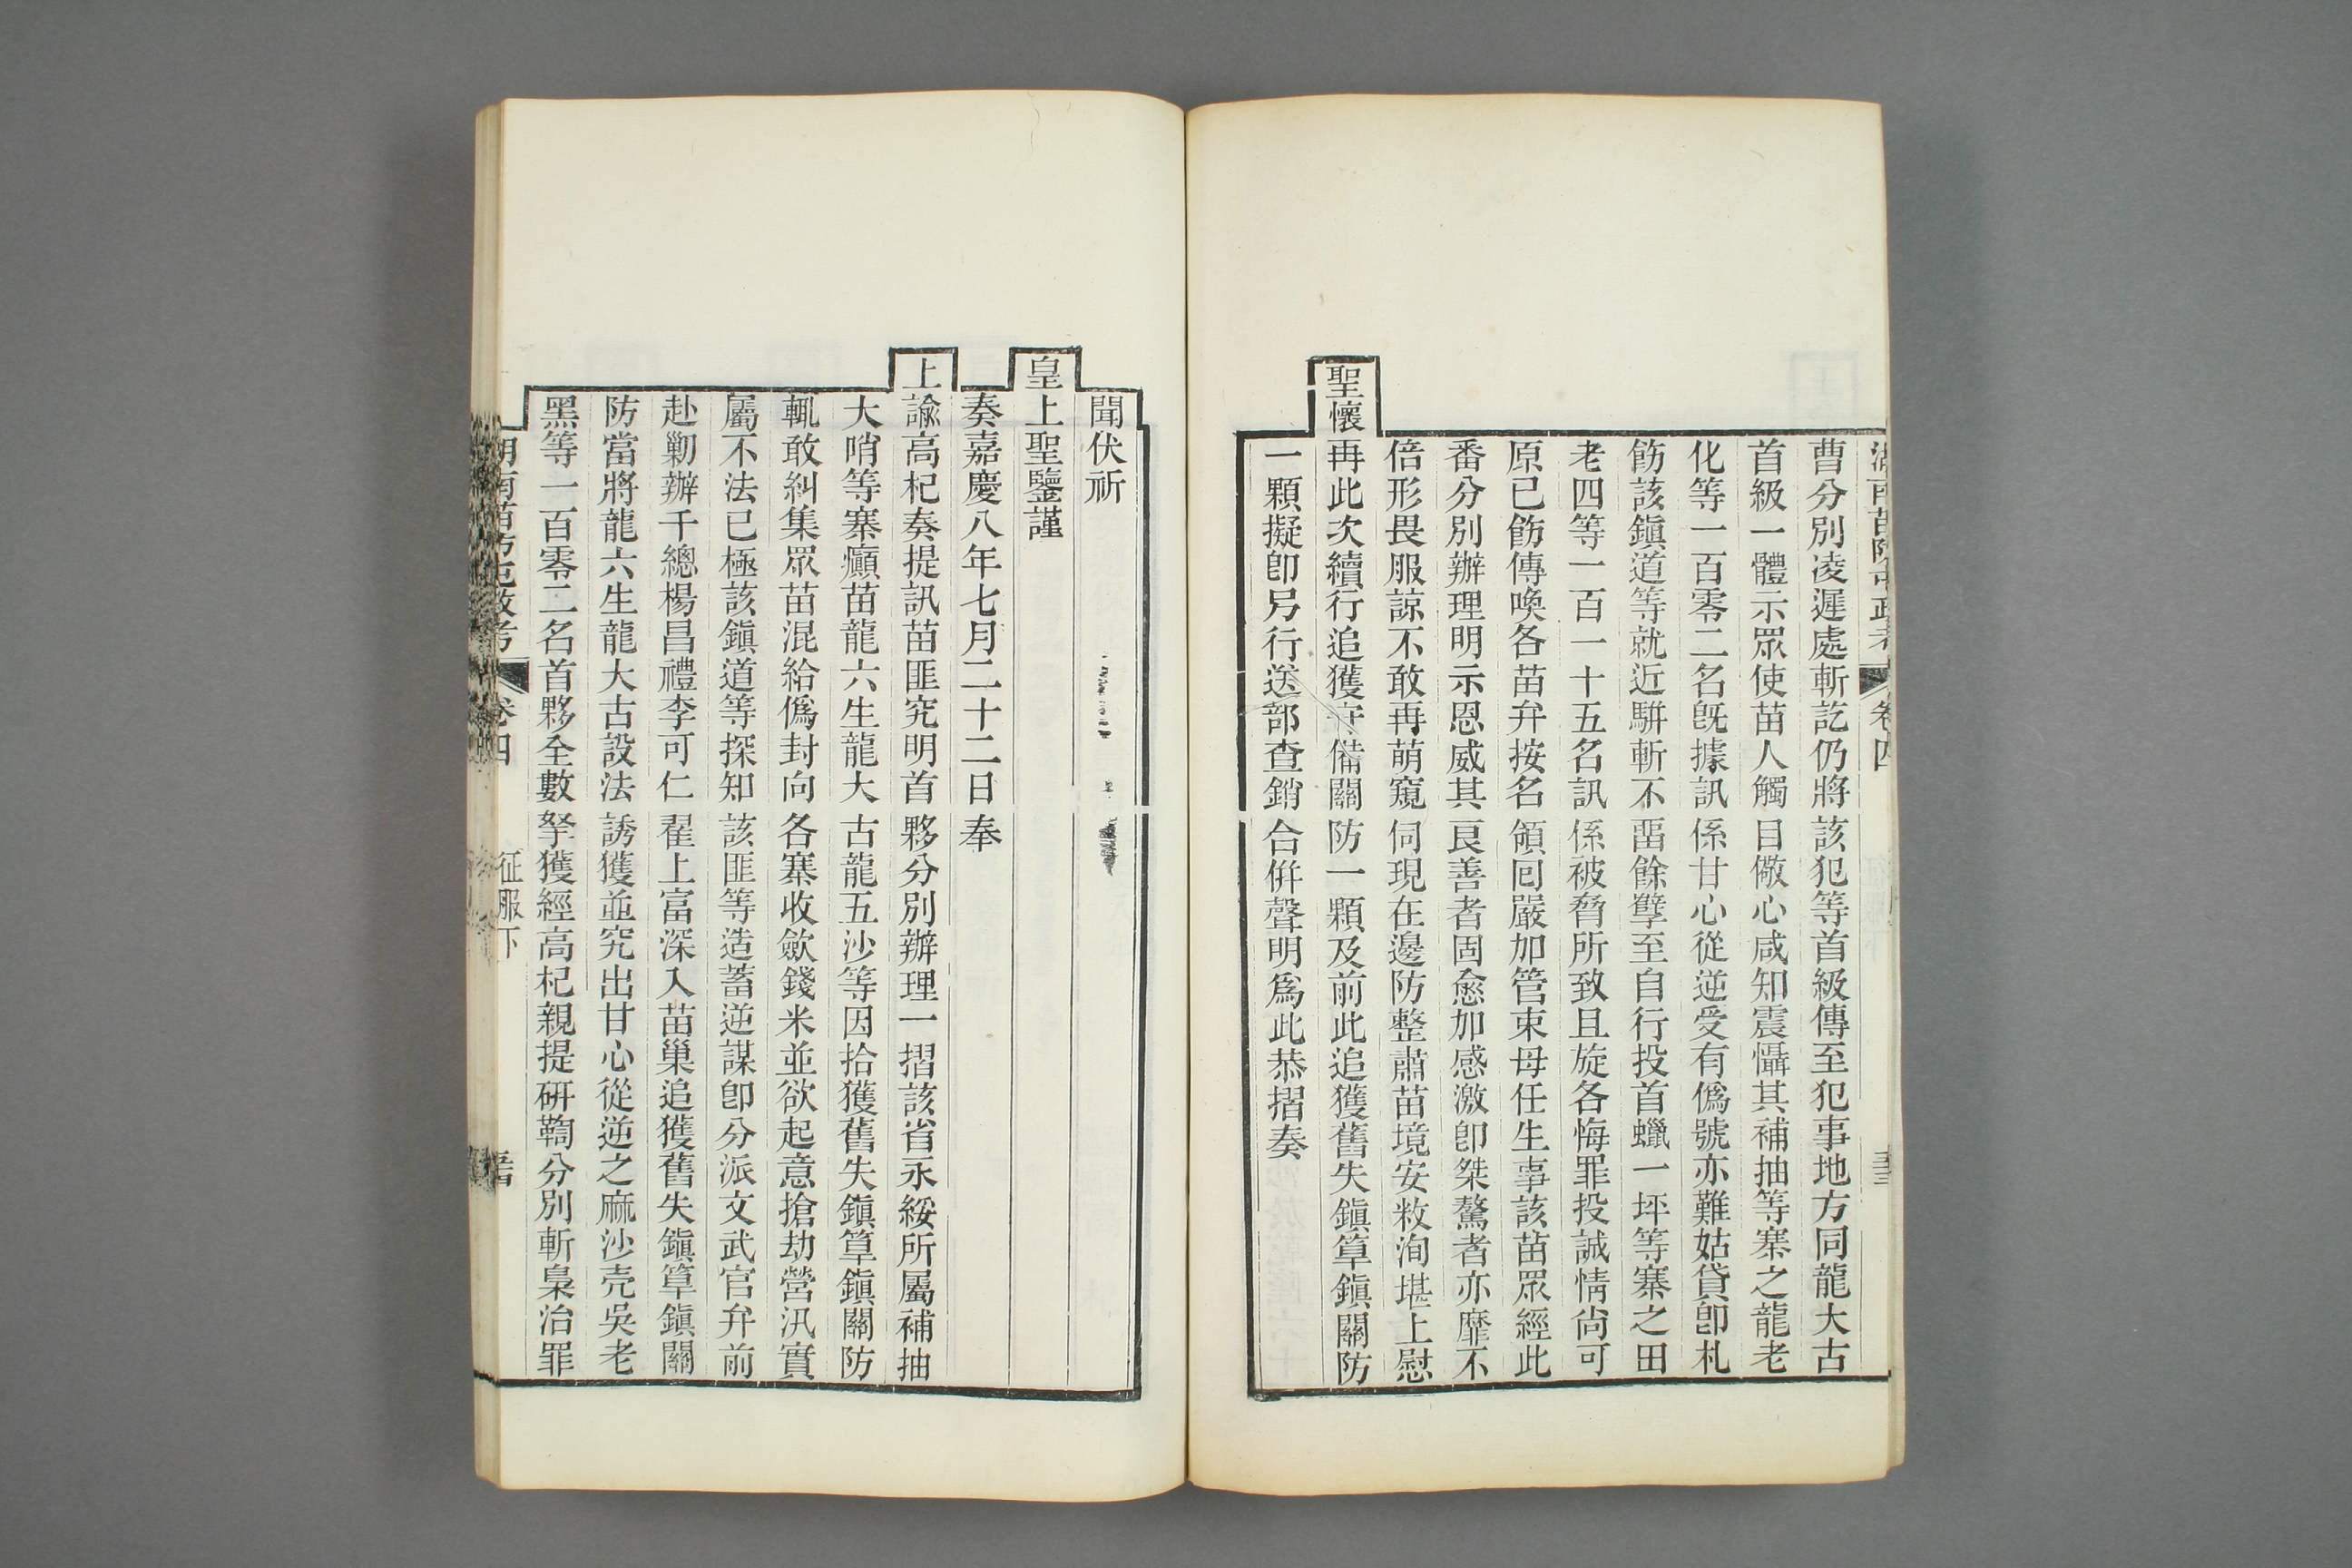 湖南苗防屯政考 卷四
曹分別凌遲處斬訖仍將該犯等首級傳至犯事地方同龍大古
首級一體示眾使苗人觸目儆心咸知震懾其補抽等寨之龍老
化等一百零二名旣據訊係甘心從逆受有僞號亦難姑貸卽札
飭該鎭道等就近駢斬不畱餘孽至自行投首蠟一坪等寨之田
老四等一百一十五名訊係被脅所致且旋各悔罪投誠情尙可
原已飭傳喚各苗弁按名領囘嚴加管束毋任生事該苗眾經此
番分別辦理明示恩威其良善者固愈加感激卽桀驁者亦靡不
倍形畏服諒不敢再萌窺伺現在邊防整肅苗境安敉洵堪上慰
聖懷再此次續行追獲守備關防一顆及前此追獲舊失鎭筸鎭關防
一顆擬卽另行送部查銷合倂聲明爲此恭摺奏
聞伏祈
皇上聖鑒謹
奏嘉慶八年七月二十二日奉
上諭高杞奏提訊苗匪究明首夥分別辦理一摺該省永綏所屬補抽
大哨等寨癲苗龍六生龍大古龍五沙等因拾獲舊失鎭筸鎭關防
輒敢糾集眾苗混給僞封向各寨收斂錢米並欲起意搶劫營汛實
屬不法已極該鎭道等探知該匪等造蓄逆謀卽分派文武官弁前
赴勦辦千總楊昌禮李可仁翟上富深入苗巢追獲舊失鎭筸鎭關
防當將龍六生龍大古設法誘獲並究出甘心從逆之麻沙壳吳老
黑等一百零二名首夥全數拏獲經高杞親提研鞫分別斬梟治罪
湖南苗防屯政考 卷四 征服下